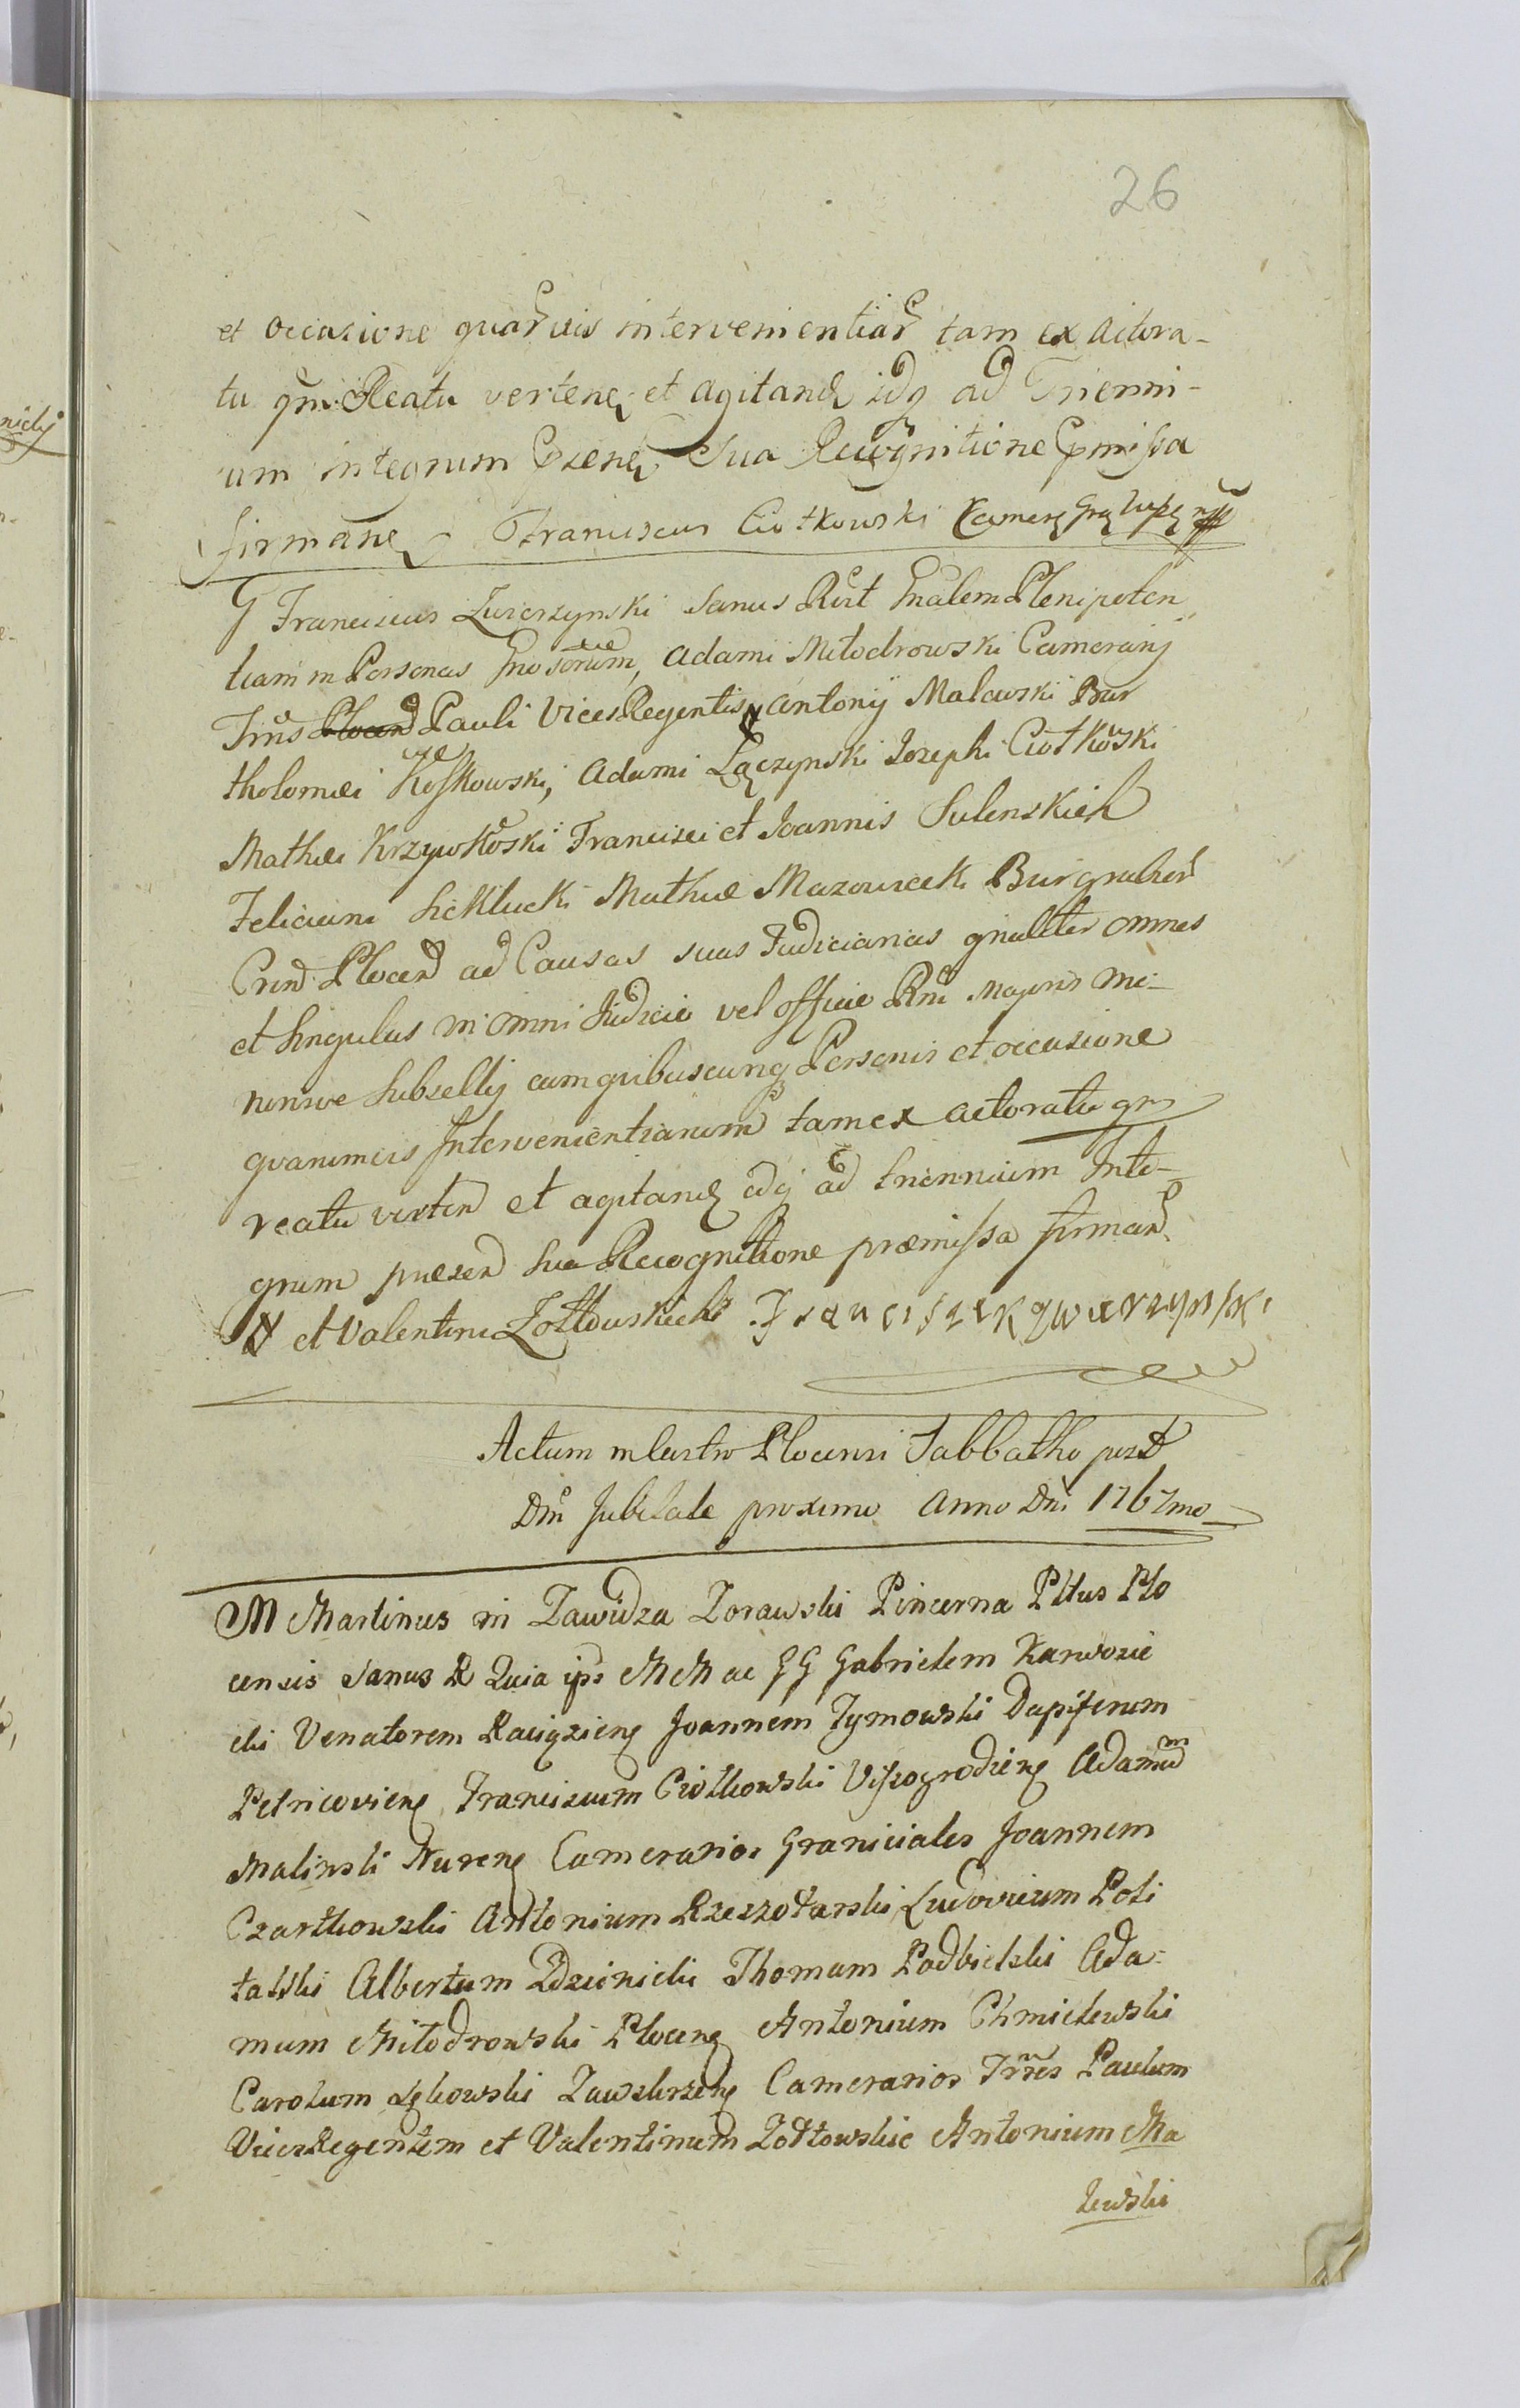 26
et occasione quar̃vis intervenientiar̃ tam ex actora-
tu qm̃ Reatu verteñ et agitand idq ad Trienni-
um integrum p̃senẽ Sua Recognitione p̃missa
firmanẽ Franciscus Ciołkowski
G Franciscus Zwierzynski Sanus Rc̃t Gnãlem Plenipoten
tiam in Personas Gnosorum, Adami Miłodrowski Camerarij
Trr̃is Plocen Pauli Vices Regentis Antonij Malewski Bar
tholomei Koskowski, Adami Łączynski Josephi Ciołkowski
Mathei Krzywkowski Francisci et Joannis Sulenskich
Feliciani Sieklucki Mathiæ Mazowiecki Burgrabior
Cren Plocen ad Causas suas Judiciarias gnaliter omnes
et singulas in omni Judicio vel officio Rni Majoris mi-
norisve Subsellij cum quibuscunq Personis et occasione
quarumvis Intervenientiarum tam ex actoratu qm
reatu verten et agitand idq ad triennium Inte-
grum præsen Sua Recognitione præmissa firman
et Valentini Żołtowskich Franciszek zwierzynski
Actum in Castro Plocensi Sabbatho post
Dm̃ Jubilate proximo Anno Dni 1767mo
M Martinus in Zawidza Zorawski Pincerna Pltus Plo
censis sanus R Quia ips MM ac GG Gabrielem Karwosie
cki Venatorem Raciązienẽ Joannem Tymowski Dapiferum
Petricovienẽ Franciscum Ciołkowski Vissogrodzienẽ Adamum
Malinski Nurenẽ Camerarios Graniciales Joannem
Czartkowski Antonium Rzeszotarski Ludovicum Poli
talski Albertum Zdzienicki Thomam Podbielski Ada-
mum Miłodrowski Plocenẽ Antonium Chmielewski
Carolum Lękowski Zawskrzenẽ Camerarios Trr̃es Paulum
Vices Regentem et Valentinum Żołtowskie Antonium Ma
lewski